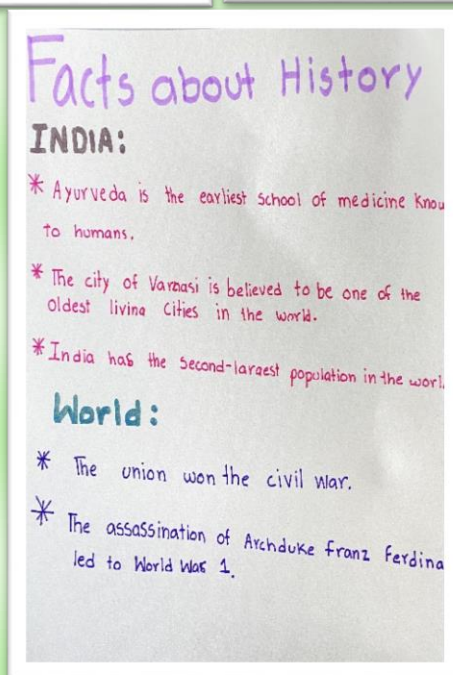 Facts about History
INDIA:
* Ayurveda is the earliest school of medicine Know
to humans.
* The city of Varnasi is believed to be one of the
oldest living Cities in the world.
* India has the Second-largest population in the worl
World:
* The union won the civil war.
* The assassination of Archduke franz ferdina
led to World War 1.